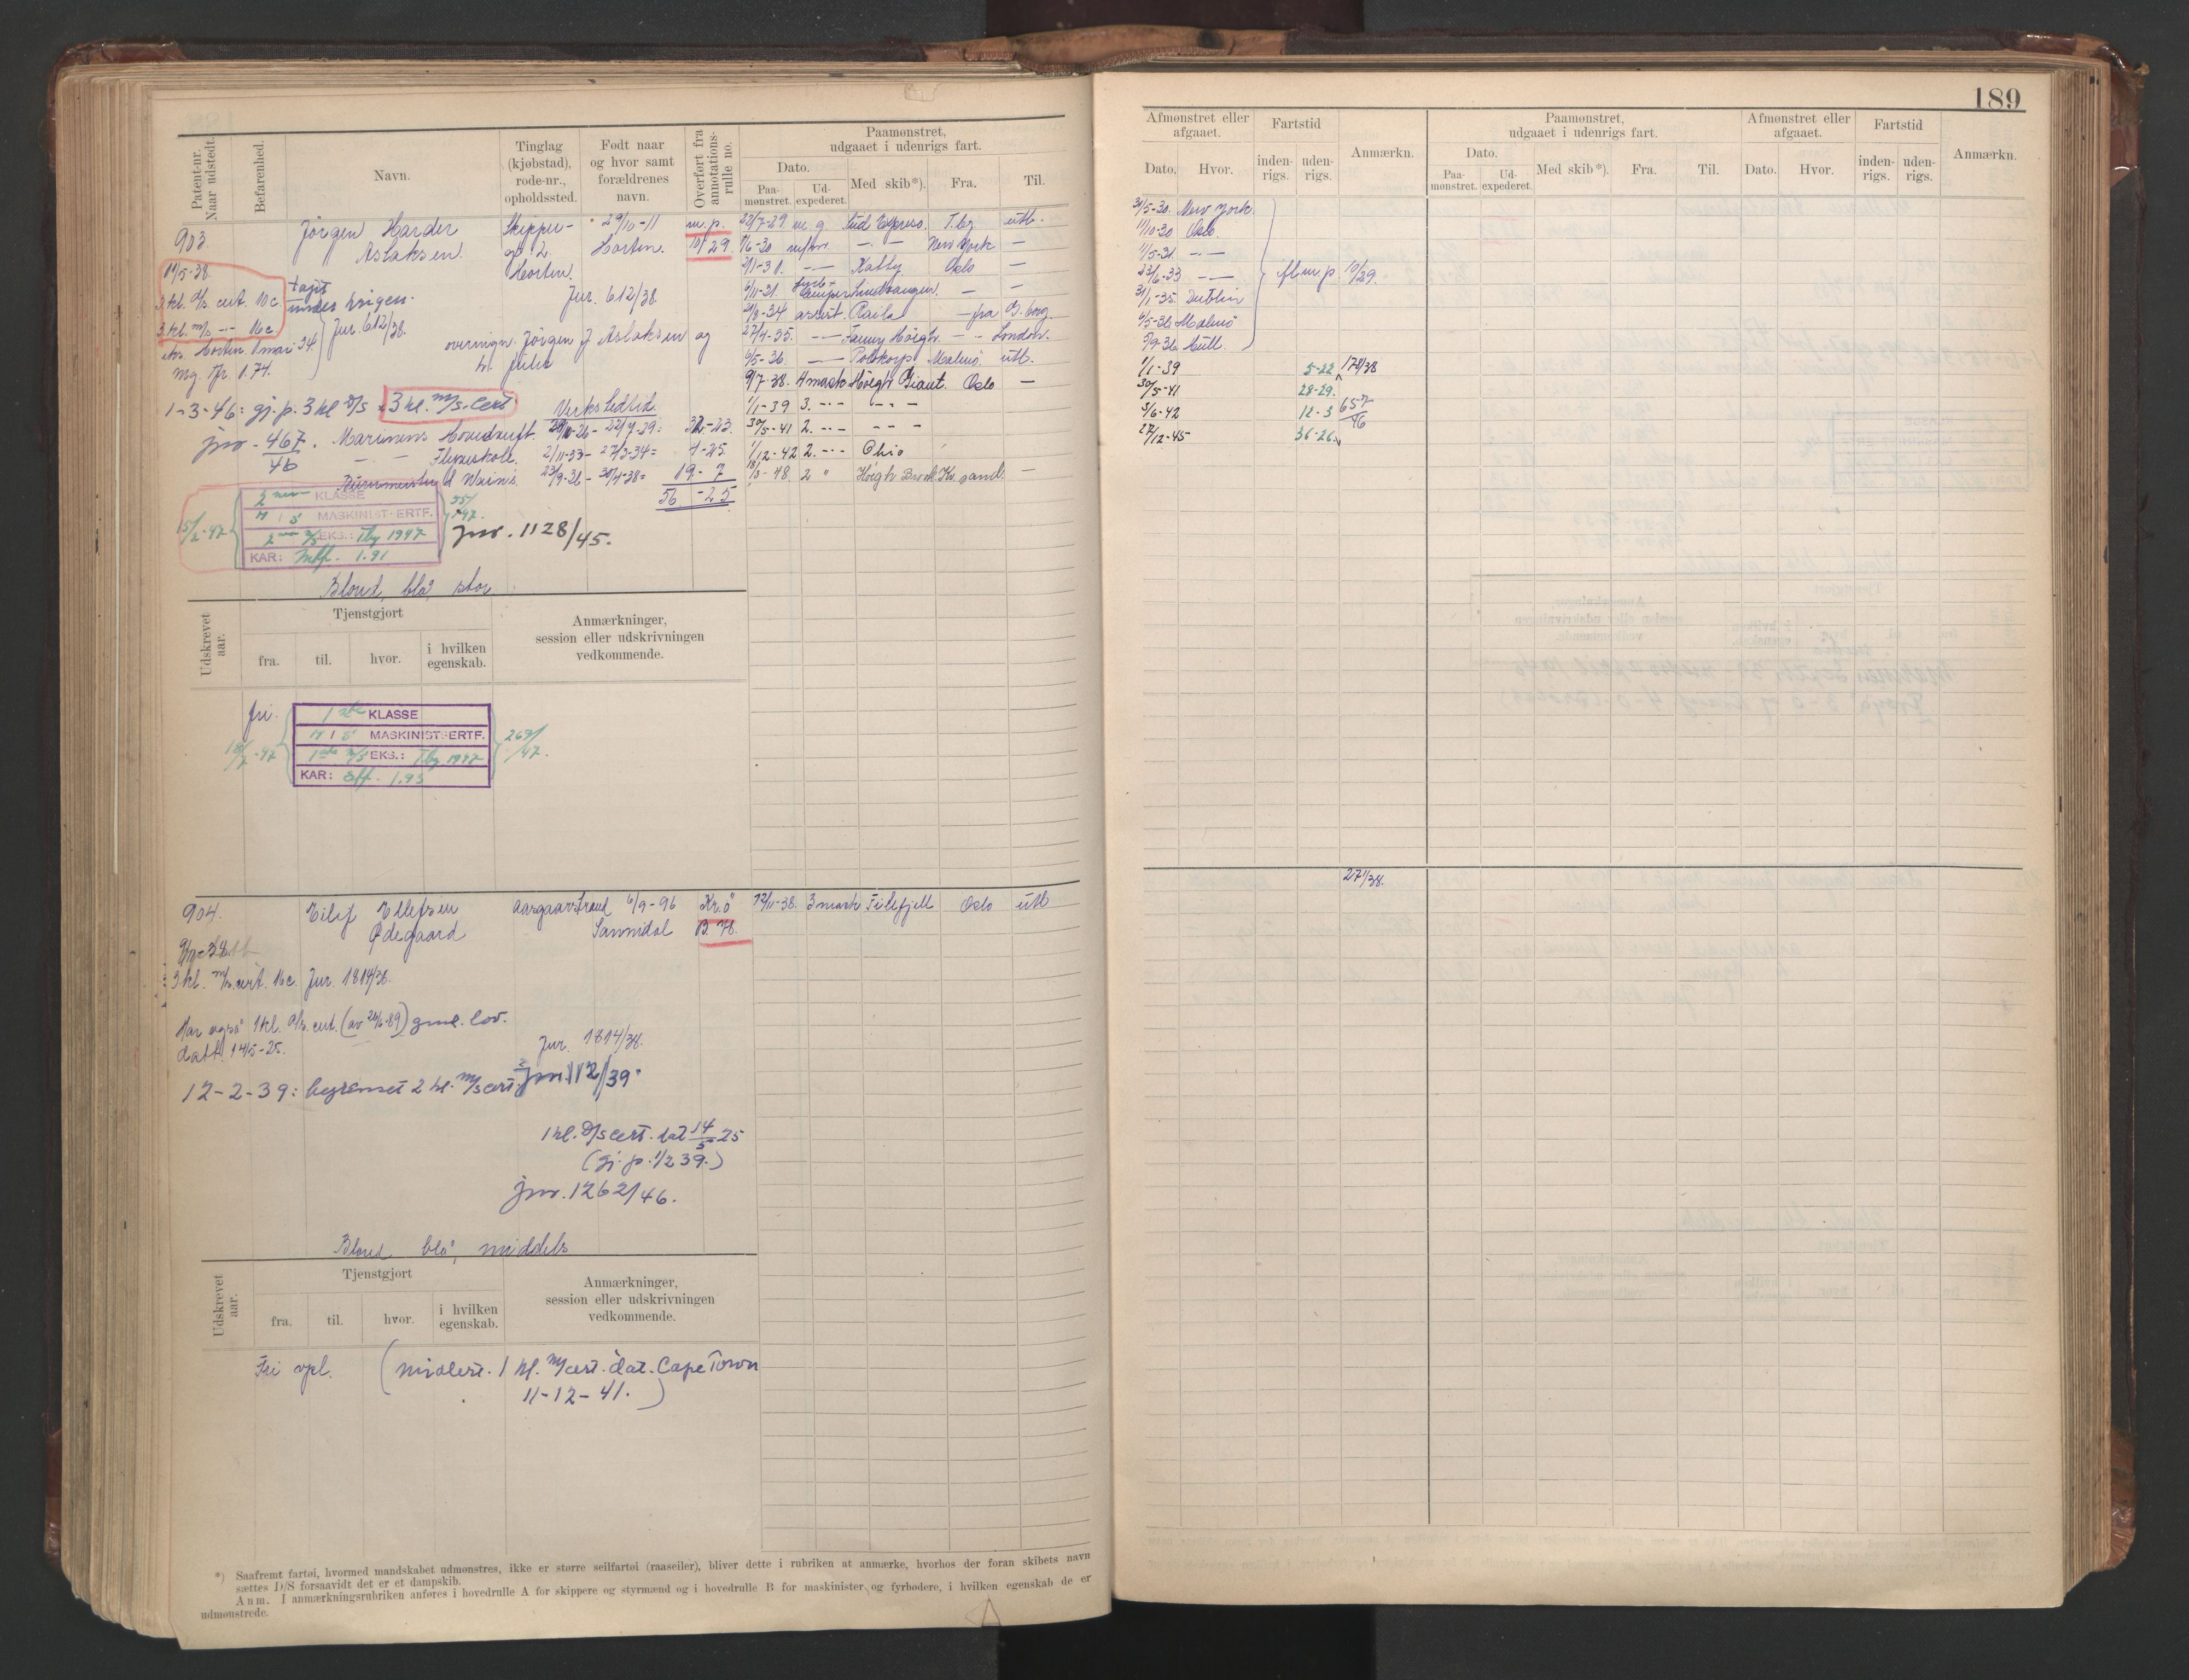 189
Patent-nr.
Naar udstedt.
Befarenhed.
Navn.
Tinglag
(kjøbstad),
rode-nr.,
opholdssted.
Født naar
og hvor samt
forældrenes
navn.
Overført fra
annotations-
rulle no.
Paamønstret,
udgaaet i udenrigs fart.
Dato.
Paa-
mønstret.
Ud-
expederet.
Med skib*).
Fra.
Til.
903.
Jörgen Harder
Aslaksen.
Skipper-
gt 2
Horten.
29/10-11
Horten.
m.p.
10/29.
Jur. 612/38.
19/5-38.
3 kl. d/s cert. 10c.
3. kl. m/s -"- 16c.
tapt
Jur. 612/38.
overingn. Jörgen J. Aslaksen og
h. Julie
1-3-46: gj. p. 3 kl D/s + 3 kl. m/s. Cert
jnr - 467/46.
Verkstedtid.
Marinens Hovedverft.
Flyveskole. 2/11-33 - 27/3-34 =
32-23.
4-25.
19-7
56-25
22/7-29 m.g. Sud Expreso. T.bg utb.
1/6-30 -"- New York -
2/11-31. -"- Katby Oslo -
2/8-34 assist. fra G.borg.
27/4-35. -"- Fanny Høegh. -"- London.
6/5-36 -"- Malmö utb.
9/7-38. 4 mask Höegh Giant. Oslo -
1/1-39 3. -"- -"- -
30/5-41 2. -"- -"- -
1/12-42 2. -"- Ohio
18/3-48 2 " Høegh Brook Kr. sand. -
15/2-47
2nen KLASSE
M/S MASKINISTSERTF.
2nen M/S EKS.: Tbg 1947
KAR: Mtf. 1.91
55/47.
jnr. 1128/45.
Blond, blå, stor
Udskrevet
aar.
Tjenstgjort
fra.
til.
hvor.
i hvilken
egenskab.
Anmærkninger,
session eller udskrivningen
vedkommende.
fri.
18/7-47
1ste KLASSE
M/S MASKINISTSERTF.
1ste M/S EKS.: Tbg 1947
KAR: Mtf. 1.93
269/47.
904.
Eilif Ellefsen
Ødegaard
Aasgaarstrand
6/9-96
Sannidal
Kr.ø
B. 78.
12/11-38. 3 mask Filefjell Oslo utb
3 kl. m/s. cert. 16c. Jur. 1814/38.
Har også 1 kl. d/s. cert. (av 26/6-89) gml. lov.
datt. 14/5-25.
Jur. 1814/38.
12-2-39: begrenset 2 kl. m/s cert. jnr. 112/39.
1 kl. D/s cert. dat 14/5 25
(gj. p. 1/2 39.)
jnr. 1262/46.
Blond blå, middels
Udskrevet
aar.
Tjenstgjort
fra.
til.
hvor.
i hvilken
egenskab.
Anmærkninger,
session eller udskrivningen
vedkommende.
Fri vpl.
(midlert. 1 kl. m/s cert. dat. Cape Town
11-12-41.)
*) Saafremt fartøi, hvormed mandskabet udmønstres, ikke er større seilfartøi (raaseiler), bliver dette i rubriken at anmærke, hvorhos der foran skibets navn
sættes D/S forsaavidt det er et dampskib.
Anm. I anmærkningsrubriken anføres i hovedrulle A for skippere og styrmænd og i hovedrulle B for maskinister og fyrbødere, i hvilken egenskab de er
udmønstrede.
Afmønstret eller
afgaaet.
Dato.
Hvor.
Fartstid
inden-
rigs.
uden-
rigs.
Anmærkn.
Paamønstret,
udgaaet i udenrigs fart.
Dato.
Paa-
mønstret.
Ud-
expederet.
Med skib*).
Fra.
Til.
Afmønstret eller
afgaaet.
Dato.
Hvor.
Fartstid
inden-
rigs.
uden-
rigs.
Anmærkn.
31/5-30. New York.
11/10-30 Oslo.
1/5-31. -"-
23/6-33 -"-
31/1-35. Dublin
6/5-36 Malmö
5/9-36 Hull.
afl. m.p 10/29.
1/1-39 5-22
30/5-41 28-29.
3/6-42 12-3 657/46
27/12-45 36-26.
271/38.